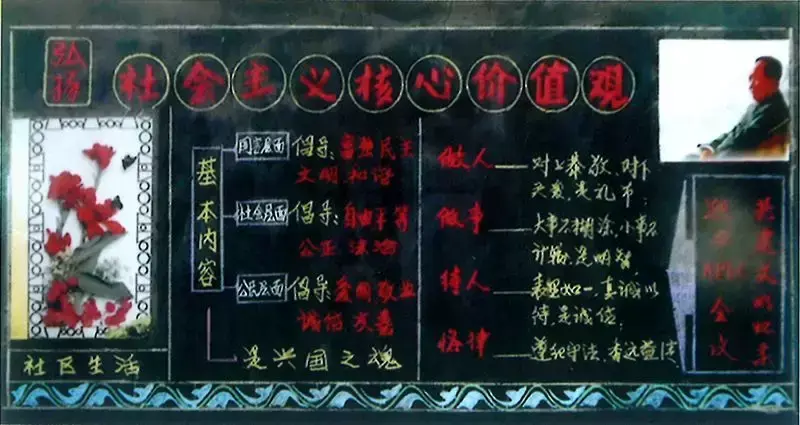 弘扬
社会主义核心价值观
基本内容
国家层面 倡导:富强民主
文明和谐
社会层面 倡导:自由平等
公正 法治
公民层面 倡导:爱国敬业
诚信友善
是兴国之魂
做人——对上恭敬,对下
是礼节;
做事——大事不糊涂,小事不
计较,是明智;
待人——表里如一,真诚以
待,是诚信;
律——遵纪守法,
共建文明
APEC会议
社区生活